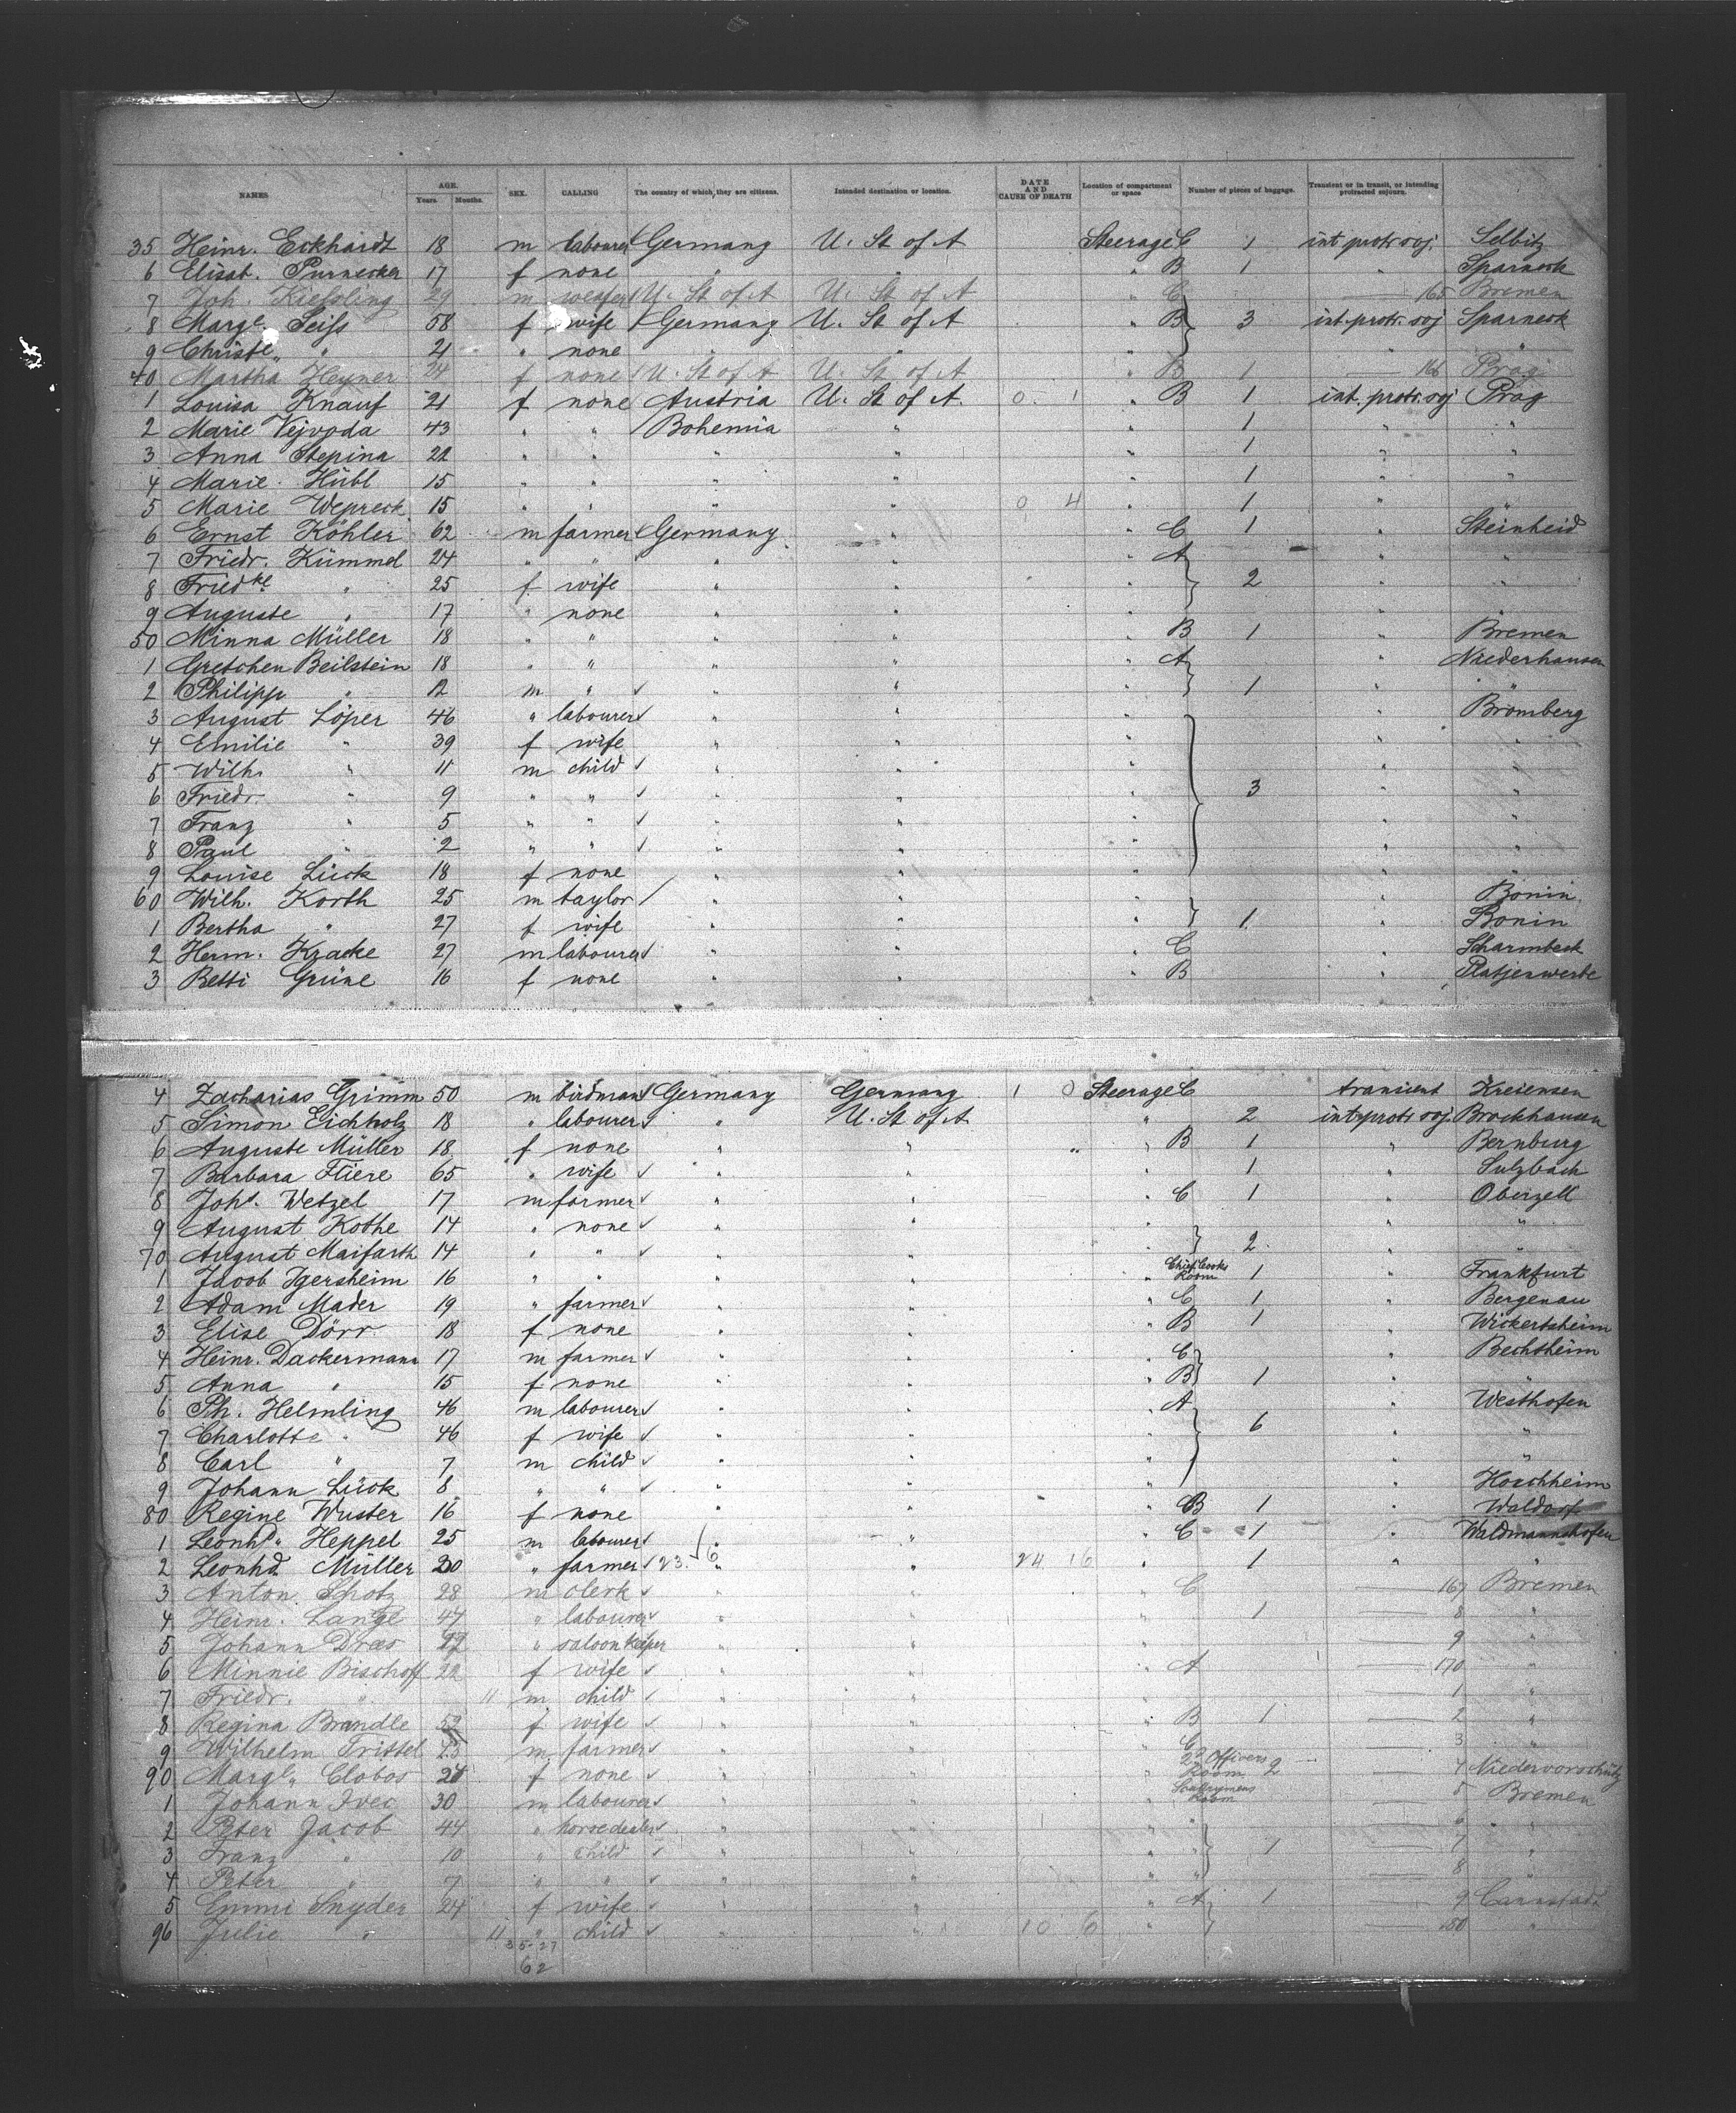 NAMES. AGE. Years. Months. SEX. CALLING The country of which they are citizens. Intended destination or location. DATE AND CAUSE OF DEATH Location of compartment or space Number of pieces of baggage. Transient or in transit, or intending protracted sojourn.
35 Heinr. Eckhardt 18 m labourer Germany U. St of A Steerage C 1 int protr. soj. Selbitz
6 Elisab. Purnecker 17 f none " " " B 1 " Sparneck
7 Joh. Kiessling 29 m weafer U. St of A U. St of A " C 165 Bremen
8 Marg. Seifs 58 f wife Germany U. St of A " B 3 int. protr. soj Sparneck
9 Christe. " 21 " none " " " " "
40 Martha Heyner 24 f none U. St of A U. St of A " B 1 166 Prag
1 Louisa Knauf 21 f none Austria U. St of A. 0. 1 " B 1 int. protr. soj Prag
2 Marie Vejvoda 43 " " Bohemia " " 1 " "
3 Anna Stepina 22 " " " " " 1 " "
4 Marie Hübl 15 " " " " " 1 " "
5 Marie Wepreck 15 " " " " 0 4 " 1 " "
6 Ernst Köhler 62 m farmer Germany " " C 1 " Steinheid
7 Friedr. Kümmel 24 " " " " " A " "
8 Friedke " 25 f wife " " " 2 " "
9 Auguste " 17 " none " " " " "
50 Minna Müller 18 " " " " " B 1 " Bremen
1 Gretchen Beilstein 18 " " " " " A " Niederhausen
2 Philipp " 12 m " " " " 1 " "
3 August Löper 46 " labourer " " " " Bromberg
4 Emilie " 39 f wife " " " " "
5 Wilh. " 11 m child " " " " "
6 Friedr. " 9 " " " " " 3 " "
7 Franz " 5 " " " " " " "
8 Paul " 2 " " " " " " "
9 Louise Lück 18 f none " " " " "
60 Wilh. Korth 25 m taylor " " " " Bonin
1 Bertha " 27 f wife " " " 1 " Bonin
2 Herm. Kracke 27 m labourer " " " C " Scharmbeck
3 Betti Grüne 16 f none " " " B " Platjenwerbe
4 Zacharias Grimm 50 m birdman Germany Germany 1 0 Steerage C transient Kreiensen
5 Simon Eichholz 18 " labourer " U. St of A " 2 int protr soj. Brockhausen
6 Auguste Müller 18 f none " " " B 1 " Bernburg
7 Barbara Fliere 65 " wife " " 1 " Sulzbach
8 Joh. Wetzel 17 m farmer " " " C 1 " Oberzell
9 August Kothe 14 " none " " " " "
70 August Maifarth 14 " " " " " 2 " "
1 Jacob Igersheim 16 " " " " " Chief Cooks Room 1 " Frankfurt
2 Adam Mader 19 " farmer " " " C 1 " Bergenau
3 Elise Dörr 18 f none " " " B 1 " Wickertsheim
4 Heinr. Dackermann 17 m farmer " " " C " Bechtheim
5 Anna " 15 f none " " " B 1 " "
6 Ph. Helmling 46 m labourer " " " A " Westhofen
7 Charlotte " 46 f wife " " " 6 " "
8 Carl " 7 m child " " " " "
9 Johann Lück 8 " " " " " " Hoschheim
80 Regine Wuster 16 f none " " " B 1 " Waldorf
1 Leonhd. Heppel 25 m labourer " " " C 1 " Waldmannshofen
2 Leonhd Müller 20 " farmer 23. 6 " " 24 16 " 1 " "
3 Anton Schotz 28 m clerk " " " C 167 Bremen
4 Heinr. Lange 47 " labourer " " " 1 8 "
5 Johann Draes " saloonkeeper " " " 9 "
6 Minnie Bischoff 22 f wife " " " A 170 "
7 Friedr. " 11 m child " " " 1 "
8 Regina Brandle 52 f wife " " " B 1 2 "
9 Wilhelm Tristel m farmer " " " C 3 "
90 Marg. Clobos f none " " " 2d Officers Room 2 4 Niedervorschütz
1 Johann Ivec 30 m labourer " " " Room 5 Bremen
2 Peter Jacob 44 " horsedealer " " " " 6 "
3 Franz " 10 " child " " " " 1 7 "
4 Peter " 7 " " " " " " 8 "
5 Emmi Snyder 24 f wife " " " A 1 9 Cannstadt
96 Julie " 11 " child " " 10 6 " 180 "
35-27
62